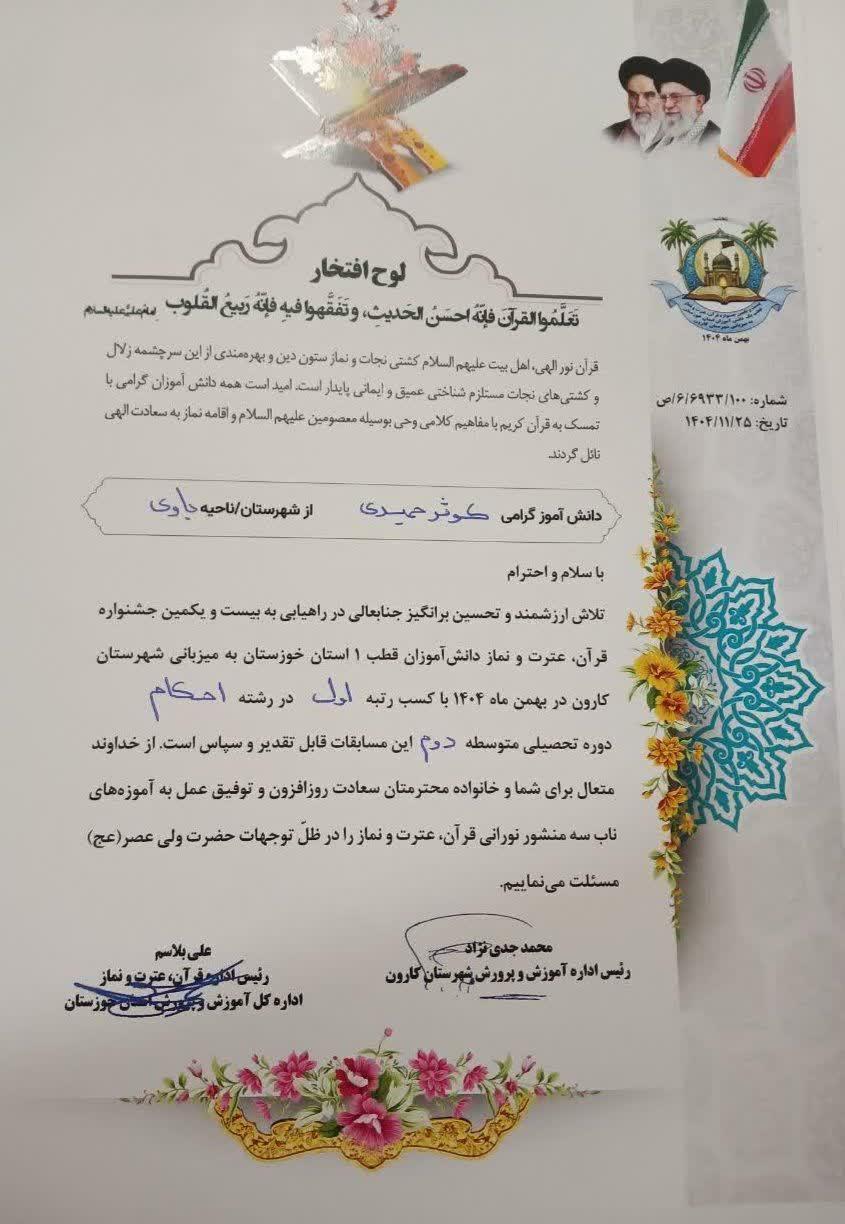 لوح افتخار
تَعَلَّمُوا القرآنَ فَإنَّهُ احسَنُ الحَدیثِ، وتَفَقَّهوا فیهِ فَإنَّهُ رَبیعُ القُلوب امام علی علیه السلام
قرآن نور الهی، اهل بیت علیهم السلام کشتی نجات و نماز ستون دین و بهره‌مندی از این سرچشمه زلال
و کشتی‌های نجات مستلزم شناختی عمیق و ایمانی پایدار است. امید است همه دانش آموزان گرامی با
تمسک به قرآن کریم با مفاهیم کلامی وحی بوسیله معصومین علیهم السلام و اقامه نماز به سعادت الهی
نائل گردند.
بهمن ماه ۱۴۰۴
شماره: ۶/۶۹۳۳/۱۰۰/ص
تاریخ: ۱۴۰۴/۱۱/۲۵
دانش آموز گرامی کوثر حمیدی از شهرستان/ناحیه باوی
با سلام و احترام
تلاش ارزشمند و تحسین برانگیز جنابعالی در راهیابی به بیست و یکمین جشنواره
قرآن، عترت و نماز دانش‌آموزان قطب ۱ استان خوزستان به میزبانی شهرستان
کارون در بهمن ماه ۱۴۰۴ با کسب رتبه اول در رشته احکام
دوره تحصیلی متوسطه دوم این مسابقات قابل تقدیر و سپاس است. از خداوند
متعال برای شما و خانواده محترمتان سعادت روزافزون و توفیق عمل به آموزه‌های
ناب سه منشور نورانی قرآن، عترت و نماز را در ظلّ توجهات حضرت ولی عصر(عج)
مسئلت می‌نماییم.
محمد جدی نژاد
رئیس اداره آموزش و پرورش شهرستان کارون
علی بلاسم
رئیس اداره قرآن، عترت و نماز
اداره کل آموزش و پرورش استان خوزستان